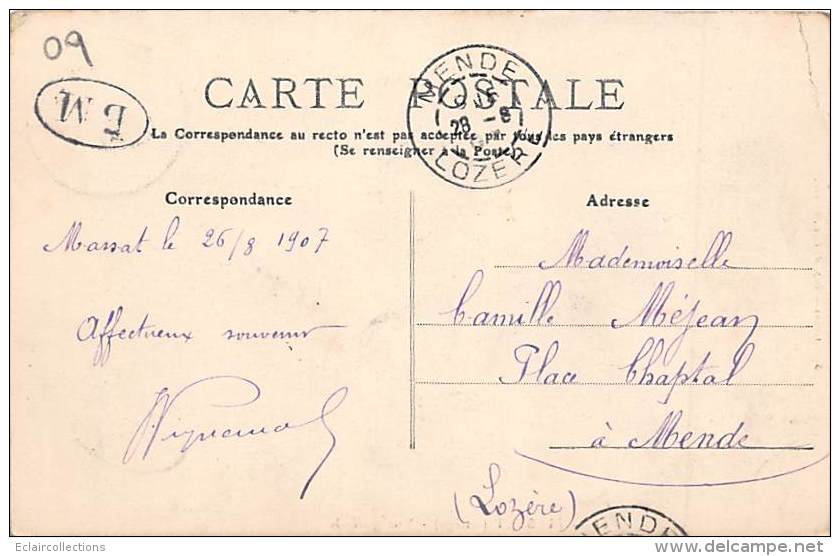 09
E M
CARTE POSTALE
MENDE
28 -8
LOZERE
La Correspondance au recto n'est pas acceptée par tous les pays étrangers
(Se renseigner à la Poste)
Correspondance
Massat le 26/8 1907
Affectueux souvenir
Adresse
Mademoiselle
Camille Méjean
Place Chaptal
à Mende
(Lozère)
MENDE
Eclaircollections